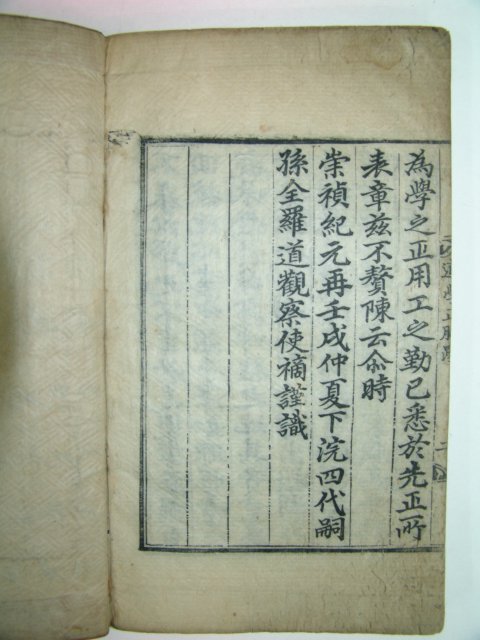 為學之正用工之勤已悉於先正所
表章兹不贅陳云尒時
崇禎紀元再壬戌仲夏下浣四代嗣
孫全羅道觀察使𥛚謹識